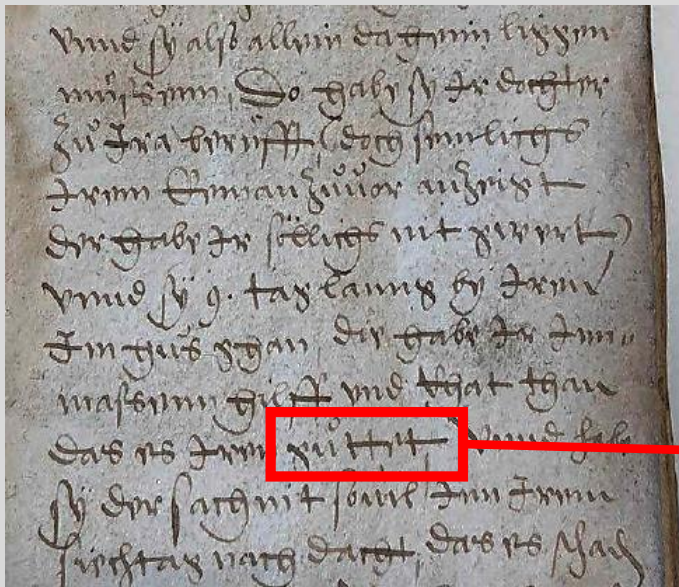 vnnd sy also allein daheim liggen
müssenn, Do habe sy Ir dochter
zů Ira berüfft, doch semlichs
Irem Eeman zůuor anzeigt
der habe Ir söllichs nit gwert,
vnnd sy 9. tag lanng by Irem
Im hus ghan, die habe Ir Inn-
massenn hilff vnd Rhat than
das es Iren gůttet, vnnd habe
sy der sach nit souil Inn Irem
siechtag nach dacht, das es